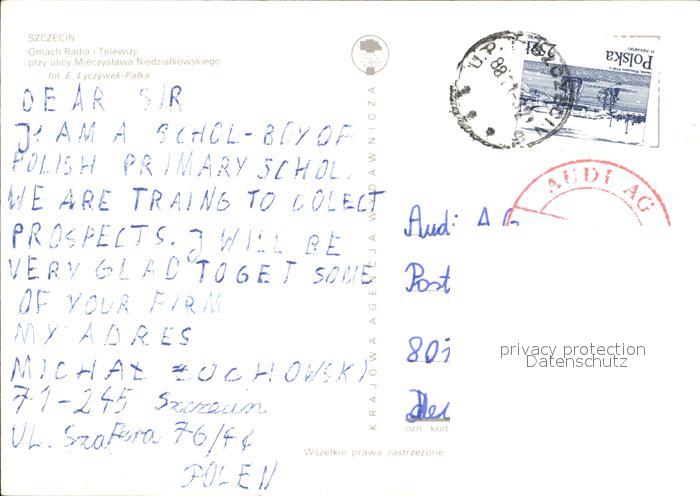 SZCZECIN
Gmach Radia i Telewizji
przy ulicy Mieczysława Niedziałkowskiego
fot. E. Łyczywek-Pałka
DEAR SIR
I AM A SCHOL-BOY OF
POLISH PRIMARY SCHOL.
WE ARE TRAING TO COLECT
PROSPECTS. I WILL BE
VERY GLAD TO GET SOME
OF YOUR FIRM
MY ADRES
MICHAŁ ŻUCHOWSKI
71-245 Szczecin
UL. Szafera
POLEN
KRAJOWA AGENCJA WYDAWNICZA
Polska
AUDI AG
Audi AG
Post
privacy protection
Datenschutz
ozn. kod
Wszelkie prawa zastrzeżone